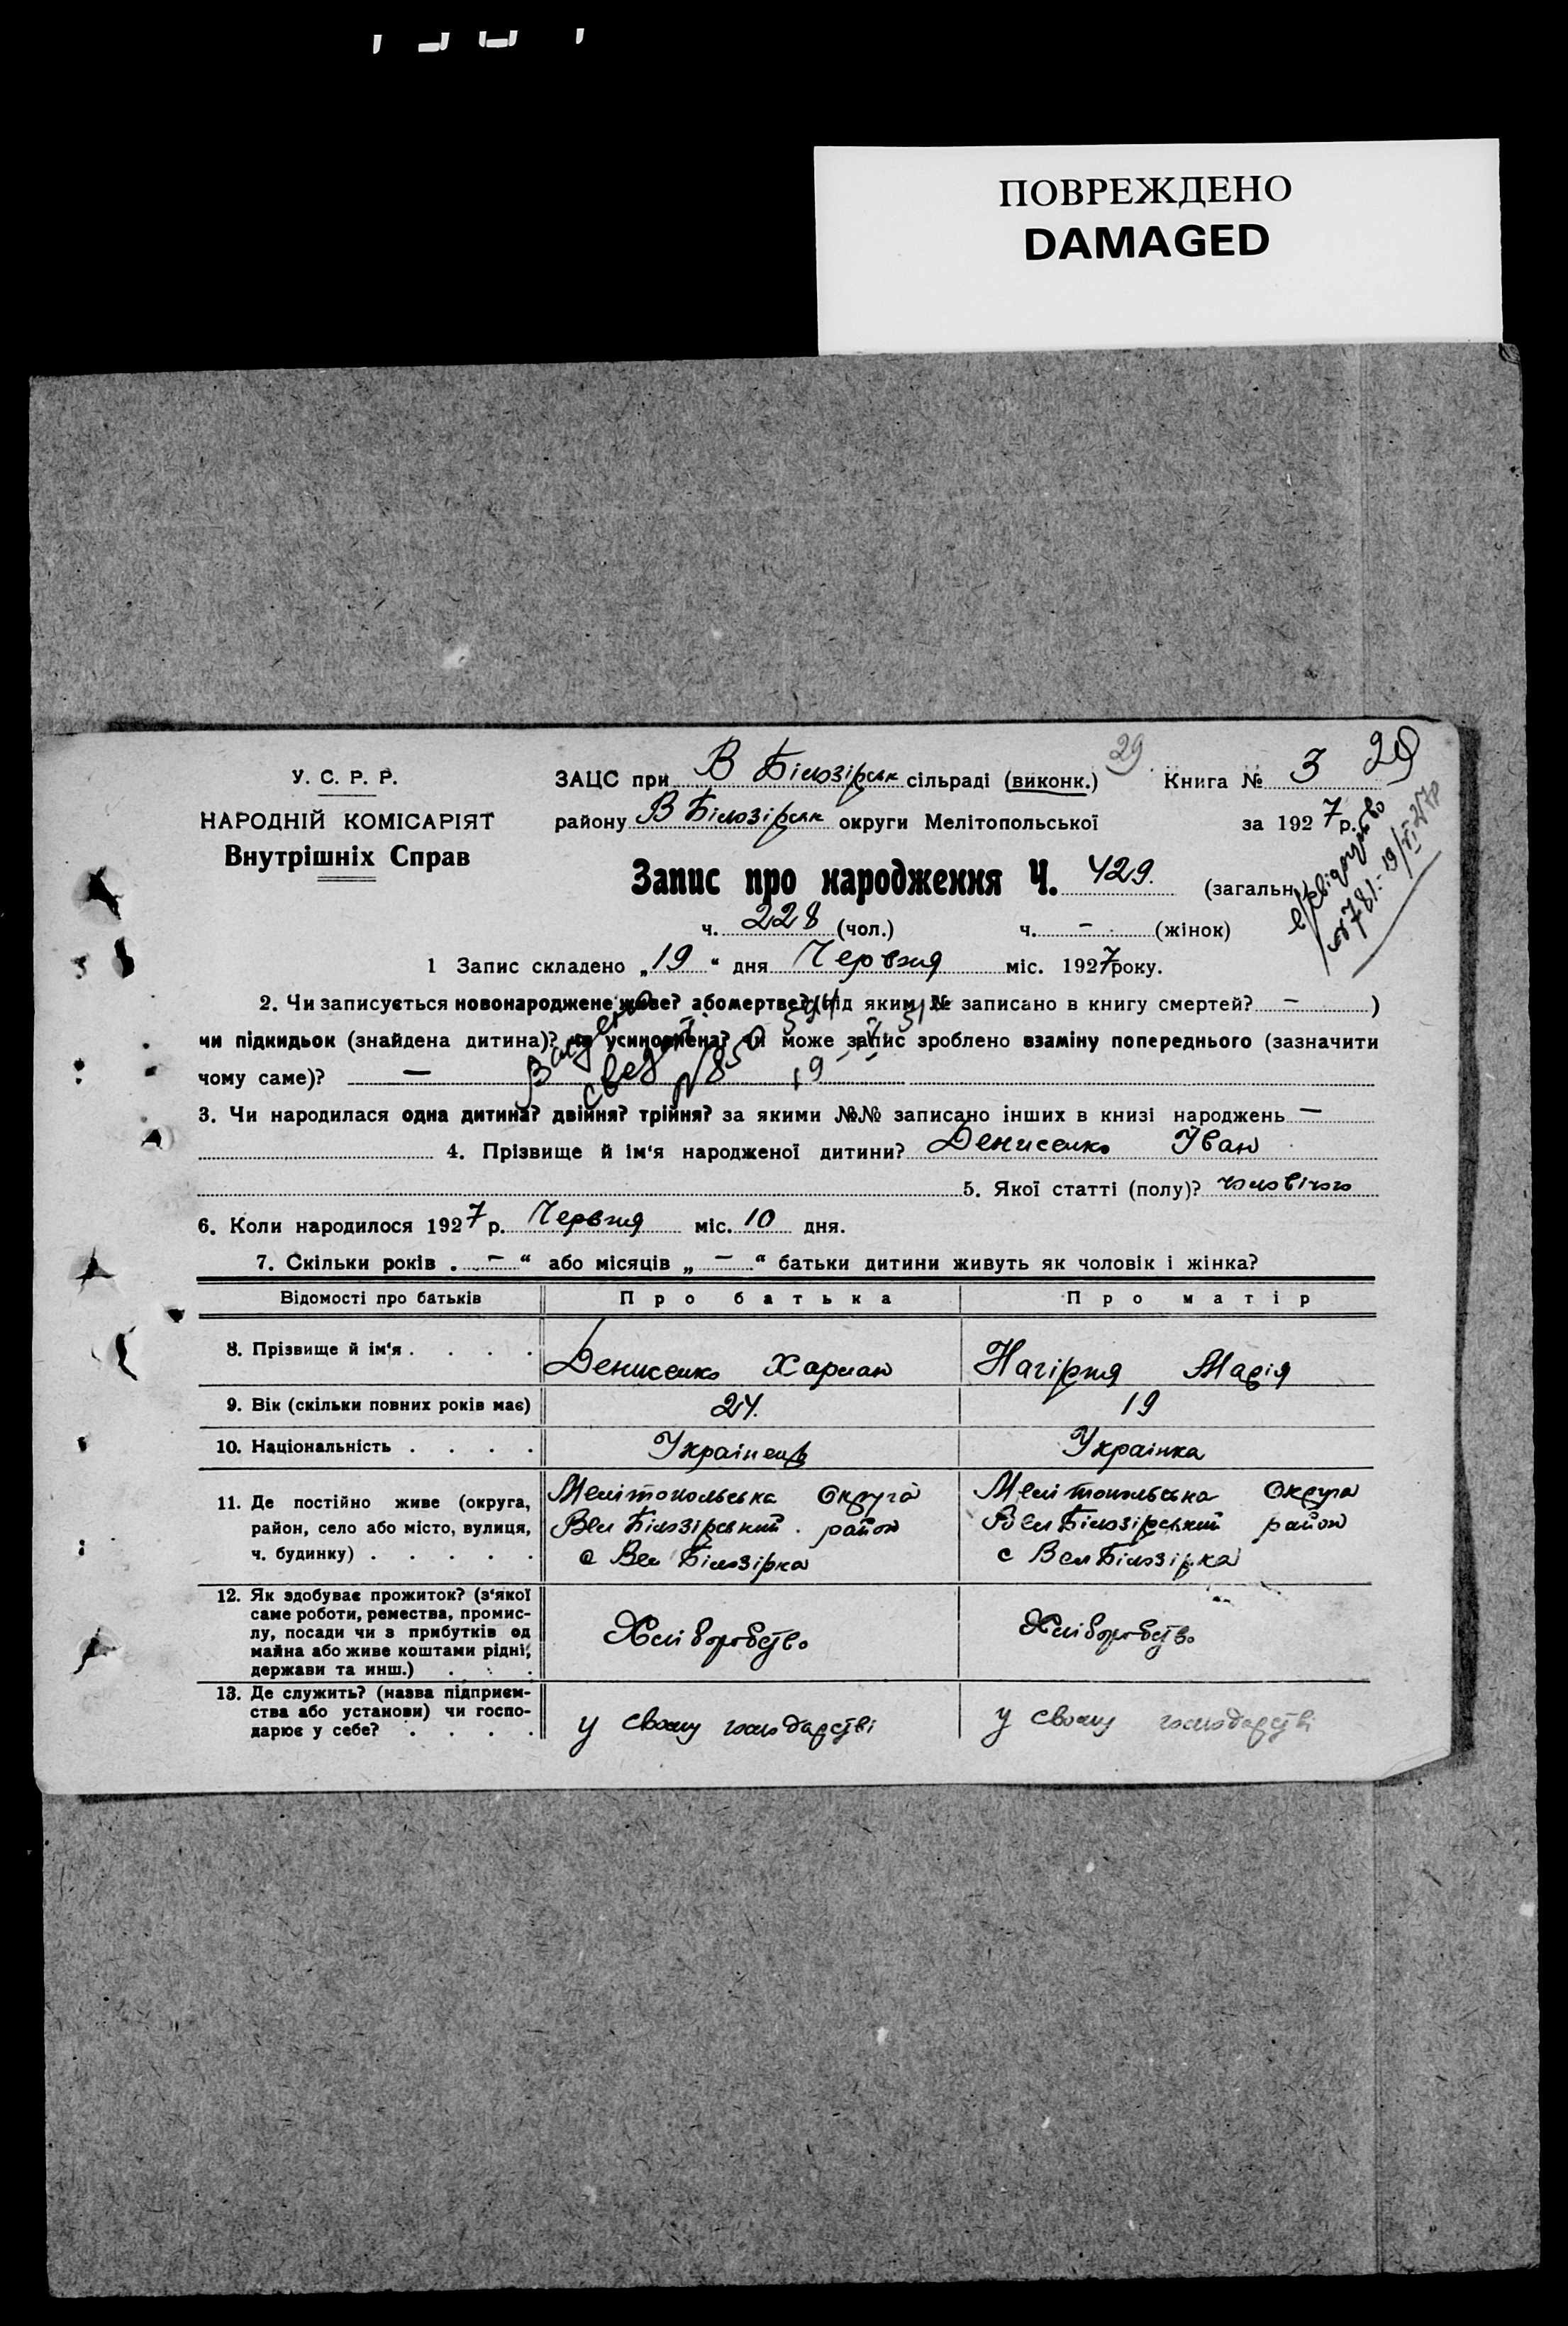 ПОВРЕЖДЕНО
DAMAGED
29
У. С. Р. Р.
НАРОДНІЙ КОМІСАРІЯТ
Внутрішніх Справ
ЗАЦС при В Білозірськ сільраді (виконк.) Книга № 3 29
району В Білозірськ округи Мелітопольської за 1927 р.
Запис про народження Ч. 429. (загальн.)
свідоцтво
№ 781 - 19/VI-27р
ч. 228 (чол.) ч. - (жінок)
1 Запис складено „19“ дня Червня міс. 1927 року.
2. Чи записується новонароджене живе? або мертве? (під яким № записано в книгу смертей? - )
чи підкидьок (знайдена дитина)? чи усиновлена? чи може запис зроблено взаміну попереднього (зазначити
чому саме)? -
свед
№ 850
19
3. Чи народилася одна дитина? двійня? трійня? за якими №№ записано інших в книзі народжень -
4. Прізвище й ім'я народженої дитини? Денисенко Іван
5. Якої статті (полу)? чоловічого
6. Коли народилося 1927 р. Червня міс. 10 дня.
7. Скільки років „ - “ або місяців „ - “ батьки дитини живуть як чоловік і жінка?
Відомості про батьків Про батька Про матір
8. Прізвище й ім'я . . . . Денисенко Харлан Нагірня Марія
9. Вік (скільки повних років має) 24. 19
10. Національність . . . . Українець Українка
11. Де постійно живе (округа,
район, село або місто, вулиця,
ч. будинку) . . . . .
Мелітопольська Округа
Вел Білозірський район
с Вел Білозірка
Мелітопольська Округа
Вел Білозірський район
с Вел Білозірка
12. Як здобуває прожиток? (з'якої
саме роботи, ремества, промис-
лу, посади чи з прибутків од
майна або живе коштами рідні,
держави та инш.) . . .
Хліборобство
Хліборобство
13. Де служить? (назва підприєм-
ства або установи) чи госпо-
дарює у себе? . . . .
у свому господарстві
у свому господарстві